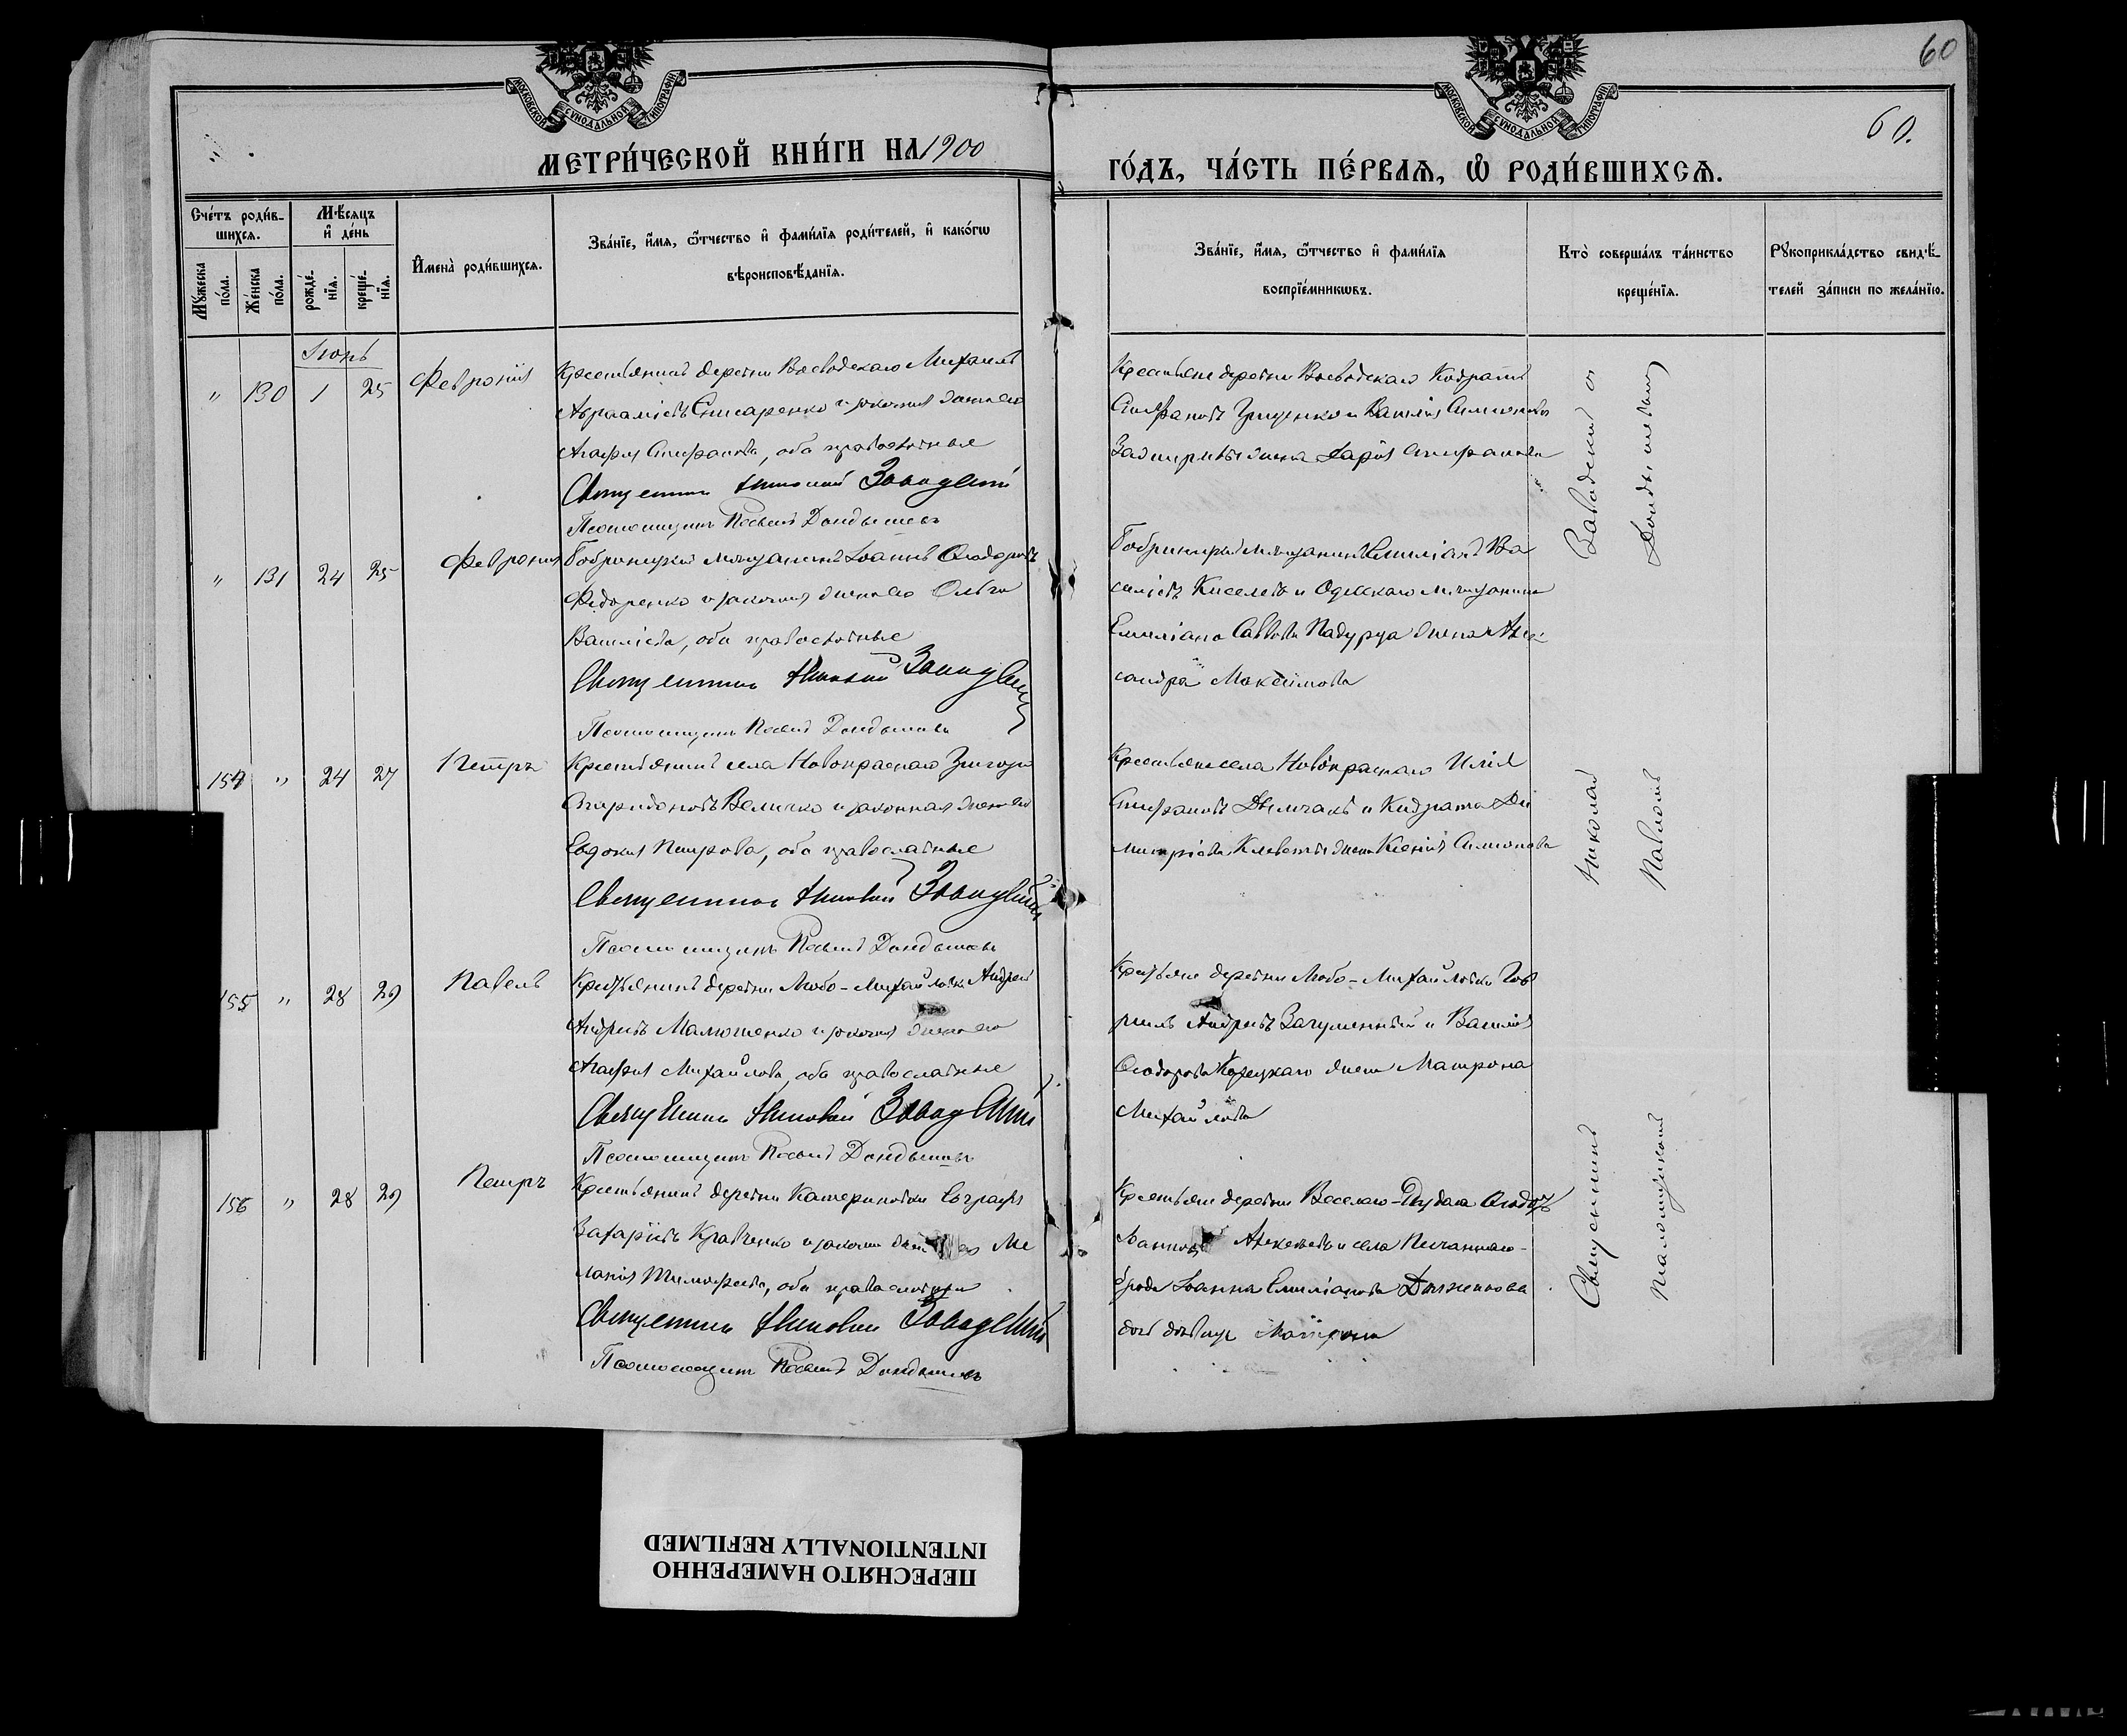 60
60.
МОСКОВСКОЙ СѴНОДАЛЬНОЙ ТИПОГРАФІИ
МОСКОВСКОЙ СѴНОДАЛЬНОЙ ТИПОГРАФІИ
МЕТРИ́ЧЕСКОЙ КНИ́ГИ НА 1900
ГО́ДЪ, ЧА́СТЬ ПЕ́РВАѦ, Ѽ РОДИ́ВШИХСѦ.
Сче́тъ роди́в-
шихсѧ.
Мꙋ́жеска по́ла.
Же́нска по́ла.
Мѣ́сѧцъ и҆ де́нь
рожде́-нїѧ.
креще́-нїѧ.
И҆мена̀ роди́вшихсѧ.
Зва́нїе, и҆́мѧ, ѻ҆́тчество и҆ фами́лїѧ роди́телей, и҆ како́гѡ
вѣроисповѣ́данїѧ.
Зва́нїе, и҆́мѧ, ѻ҆́тчество и҆ фами́лїѧ
воспрїе́мникѡвъ.
Кто̀ соверша́лъ та́инство
креще́нїѧ.
Рꙋкоприкла́дство свидѣ́-
телей за́писи по жела́нїю.
Іюнь
" 130 1 25 Февронія
Крестьянинъ деревни Воеводскаго Михаилъ
Аврааміевъ Снисаренко и законная жена его
Агафія Стефанова, оба православные
Священникъ Николай Заводскій
Псаломщикъ Павелъ Дондышевъ
Крестьяне деревни Воеводскаго Кодратъ
Стефановъ Грищенко и Василія Симеонова
жена Дарія Стефанова
" 131 24 25 Февронія
Бобринецкій мѣщанинъ Іоаннъ Ѳеодоровъ
Федоренко и законная жена его Ольга
Василіева, оба православные
Священникъ Николай Заводскій
Псаломщикъ Павелъ Дондышевъ
Бобринецкій мѣщанинъ Емиліанъ Ва
силіевъ Киселевъ и Одесскаго мѣщанина
Емиліана Саввова Падуруа жена Алек
сандра Максимова
154 " 24 27 Петръ
Крестьянинъ села Новокраснаго Григорій
Спиридоновъ Величко и законная жена его
Евдокія Петрова, оба православные
Священникъ Николай Заводскій
Псаломщикъ Павелъ Дондышевъ
Крестьяне села Новокраснаго Илія
Стефановъ и Кодрата Ди
митріева жена Ксенія Симеонова
155 " 28 29 Павелъ
Крестьянинъ деревни Любо-Михайловки Андрей
Андреевъ Малюшенко и законная жена его
Агафія Михайлова, оба православные
Священникъ Николай Заводскій
Псаломщикъ Павелъ Дондышевъ
Крестьяне деревни Любо-Михайловки Гав
риилъ Андреевъ Загуменный и Василія
Ѳеодорова Корецкаго жена Матрона
Михайлова
156 " 28 29 Петръ
Крестьянинъ деревни Катериновки Евграфъ
Захаріевъ Кравченко и законная жена его Ме
ланія Тимофеева, оба православные
Священникъ Николай Заводскій
Псаломщикъ Павелъ Дондышевъ
Крестьяне деревни Веселаго-Ѳеодоръ
Іоанновъ Алексеевъ и села Песчаннаго-
брода Іоанна Емиліанова
дочь дѣвица Матрона
Священникъ Николай Заводскій и
Псаломщикъ Павелъ Дондышевъ
ПЕРЕСНЯТО НАМЕРЕННО
INTENTIONALLY REFILMED